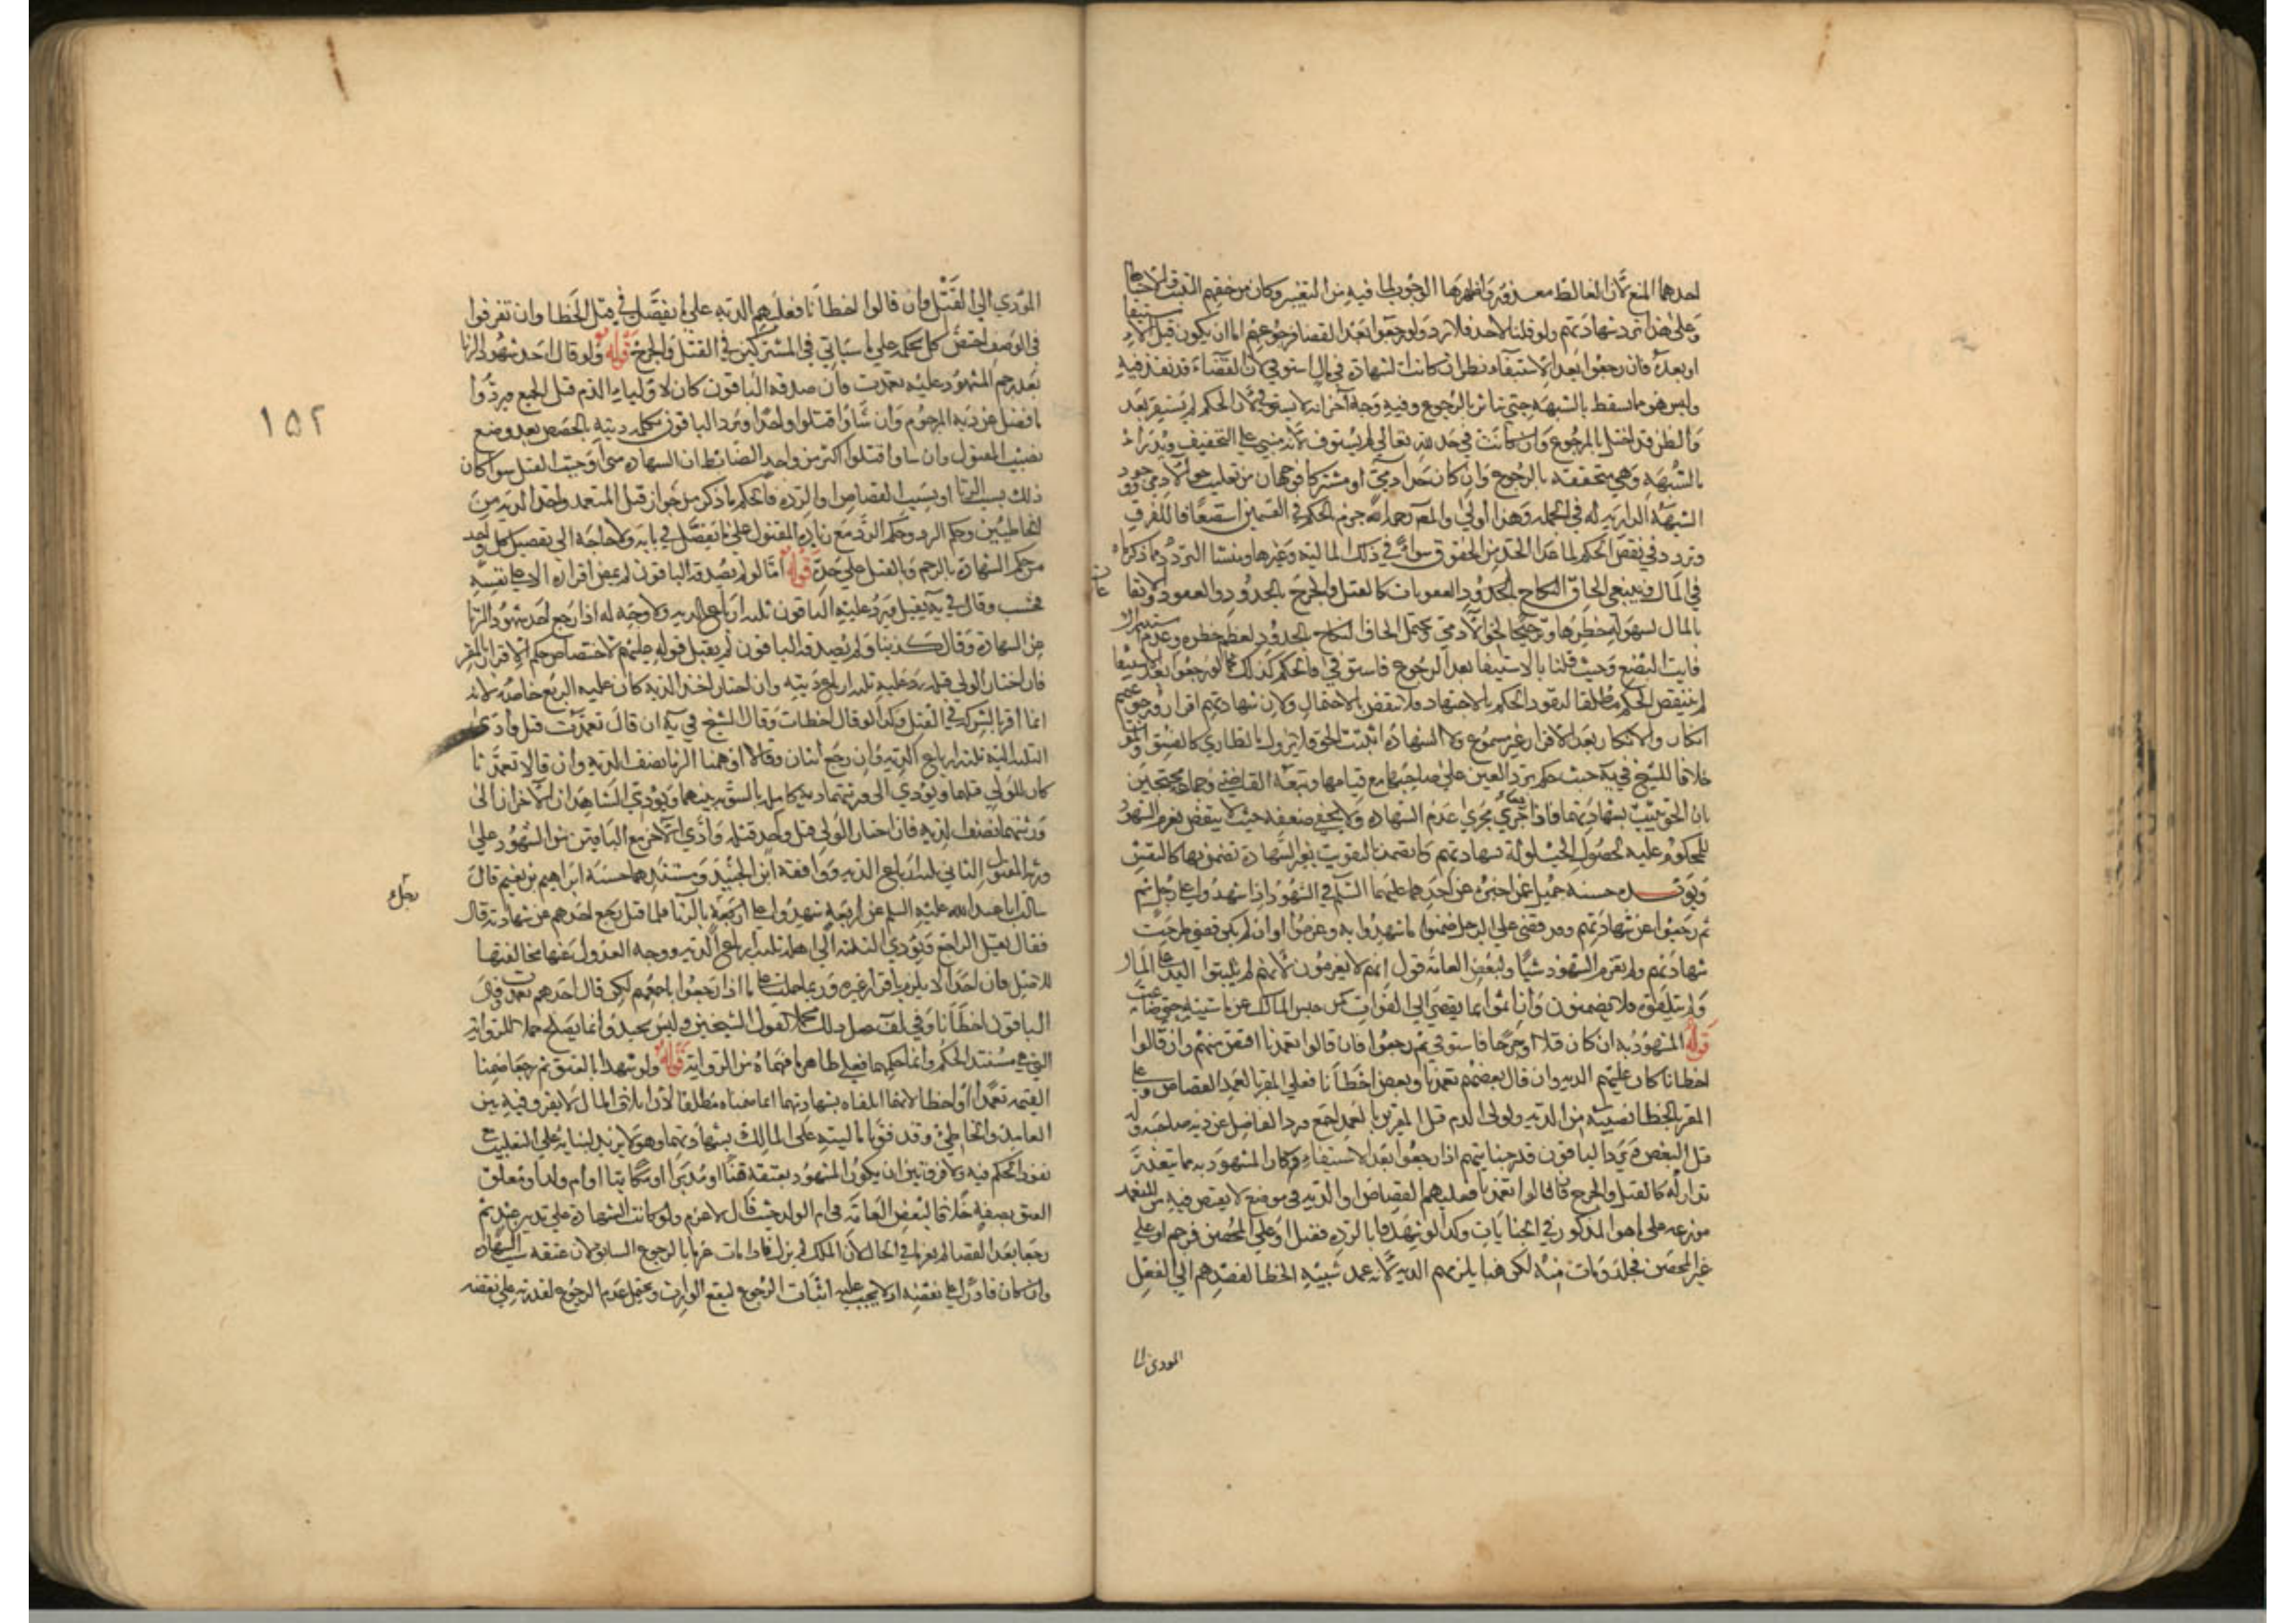 احدهما المنع لان الغالط معذور واظهرها الوجوب لما فيه من التغيير وكان من حقهم التثبت والاحتياط
وعلى هذا ترد شهادتهم ولو قلنا لاحد فلا ترد ولو رجعوا بعد القضا فرجوعهم اما ان يكون قبل الاستيفا
او بعده فان رجعوا بعد الاستيفاء نظر ان كانت الشهادة في مال استوفي لان القضاء قد نفذ فيه
وليس هو مما يسقط بالشبهة حتي يتاثر بالرجوع وفيه وجه آخر انه لا يستوفي لان الحكم لم يستقر بعد
والظن قد اختل بالرجوع وان كانت في حد لله تعالي لم يستوف لانه مبني علي التخفيف ويدراء
بالشبهة وهي متحققة بالرجوع وان كان حد ادمي او مشتركا فوجهان من تغليب حق الادمي ووجود
الشبهة الدارية له في الجملة وهذا اولي والمص رحمه الله جزم الحكم في القسمين استضعافا للفرق
وتردد في نقض الحكم لما عدا الحد من الحقوق سواء في ذلك المالية وغيرها ومنشا التردد مما ذكرناه
في المال وينبغي الحاق النكاح بالحدود والعقوبات كالقتل والجرح بالحدود والعقود والايقاعات
بالمال لسهولة خطرها وترجيحا لحق الآدمي ويحتمل الحاق النكاح بالحدود لعظم خطره وعدم استدراك
فايت البضع وحيث قلنا بالاستيفا بعد الرجوع فاستوفي فالحكم كذلك كما لو رجعوا بعد الاستيفا
لم ينتقض الحكم مطلقا لنفوذ الحكم بالاجتهاد فلا ينقض بالاحتمال ولان شهادتهم اقرار ورجوعهم
انكار والانكار بعد الاقرار غير مسموع ولان الشهادة اثبتت الحق فلا يزول بالطاري كالفسق والموت
خلافا للشيخ في ية حيث حكم برد العين علي صاحبها مع قيامها وتبعه القاضي وجماعة محتجين
بان الحق ثبت بشهادتهما فاذا رجعا جري مجري عدم الشهادة ولا يخفي ضعفه حيث لا ينتقض يغرم الشهود
للمحكوم عليه لحصول الحيلولة بشهادتهم كما تضمنا التفويت بغير الشهادة تضمن بها كالنفس
ويؤيده حسنة جميل عمن اخبره عن احدهما عليهما السلم في الشهود اذا شهدوا علي رجل ثم
ثم رجعوا عن شهادتهم وقد قضي علي الرجل ضمنوا ما شهدوا به وغرموا وان لم يكن قضي طرحت
شهادتهم ولم يغرم الشهود شيئا ولبعض العامة قول انهم لا يغرمون لانهم لم يثبتوا اليد علي المال
ولم يتلفوه فلا يضمنون وان اتوا بما يفضي الي الفوات كمن حبس المالك عن ماشيته حتي ضاعت
قوله المشهود به ان كان قتلا او جرحا فاستوفي ثم رجعوا فان قالوا تعمدنا اقتص منهم وان قالوا
اخطانا كان عليهم الدية وان قال بعضهم تعمدنا وبعض اخطانا فعلي المقر بالعمد القصاص وعلي
المقر بالخطا نصيبه من الدية ولولي الدم قتل المقرين بالعمد اجمع ورد الفاضل عن دية صاحبه وله
قتل البعض ويرد الباقون قدر جنايتهم اذا رجعوا بعد الاستيفاء وكان المشهود به مما يتعذر
تداركه كالقتل والجرح فان قالوا تعمدنا فعليهم القصاص او الدية في موضع لا يقتص فيه من المتعمد
موزعة علي ما هو المذكور في الجنايات وكذا لو شهدوا بالردة فقتل او علي المحصن فرجم او علي
غير المحصن فجلد ومات منه لكن هنا يلزمهم الدية لانه عمد شبيه الخطا لقصدهم الي الفعل
المودي الي
المؤدي الي القتل وان قالوا اخطانا فعليهم الدية علي ما يفصل في قتل الخطا وان تفرقوا
في الوصف اختص كل بحكمه علي ما سياتي في المشتركين في القتل والجرح قوله ولو قال احد شهود الزنا
بعد رجم المشهود عليه تعمدت فان صدقه الباقون كان لاولياء الدم قتل الجميع ويردوا
ما فضل عن دية المرجوم وان شاؤا قتلوا واحدا ويرد الباقون تكملة ديته بالحصص بعد وضع
نصيب المقتول وان شاوا قتلوا اكثر من واحد الضابط ان الشهادة متي اوجبت القتل سوا كان
ذلك بسبب الزنا او بسبب القصاص او الردة فالحكم ما ذكر من جواز قتل المتعمد واخذ الدية من
الخاطيين وحكم الرد وحكم الرد مع زيادة المقتول علي ما يفصل في بابه ولا حاجة الي تفصيل كل واحد
من حكم الشهادة بالرجم وبالقتل علي حدة قوله اما لو لم يصدقه الباقون لم يمض اقراره الا علي نفسه
فحسب وقال في ية يقتل ويرد عليه الباقون ثلثة ارباع الدية ولا وجه له اذا رجع احد شهود الزنا
عن الشهادة وقال كذبنا ولم يصدقه الباقون لم يقبل قوله عليهم لاختصاص حكم الاقرار بالمقر
فان اختار الولي قتله رد عليه ثلثة ارباع ديته وان اختار اخذ الدية كان عليه الربع خاصة لانه
انما اقر بالشركة في القتل وكذا لو قال اخطات وقال الشيخ في ية ان قال تعمدت قتل وادي
الثلثة اليه ثلثة ارباع الدية وان رجع اثنان وقالا اوهمنا الزما نصف الدية وان قالا تعمدنا
كان للولي قتلهما ويؤدي الي ورثتهما دية كاملة بالسوية بينهما ويؤدي الشاهدان الآخران الي
ورثتهما نصف الدية فان اختار الولي قتل واحد قتله وادي الآخر مع الباقين من الشهود علي
ورثة المقتول الثاني ثلثة ارباع الدية ووافقه ابن الجنيد ومستندهما حسنة ابراهيم بن نعيم قال
سالت ابا عبد الله عليه السلم عن اربعة شهدوا علي رجل بالزنا فلما قتل رجع احدهم عن شهادته قال
فقال يقتل الراجع ويؤدي الثلثة الي اهله ثلثة ارباع الدية ووجه العدول عنها مخالفتها
للاصل فان احدا لا يلزم باقرار غيره وربما حملت علي ما اذا رجعوا باجمعهم لكن قال احدهم تعمدت وقال
الباقون اخطانا وفي لف جعل ذلك محملا لقول الشيخين وليس بجيد وانما يصلح حملا للرواية
التي هي مستند الحكم وانما حكمهما فعلي ظاهر ما فهماه من الرواية قوله ولو شهدا بالعتق ثم رجعا ضمنا
القيمة تعمدا او اخطا لانهما اتلفاه بشهادتهما انما ضمناه مطلقا لان اتلاف المال لا يفرق فيه بين
العامد والخاطي وقد فوتا ماليته علي المالك بشهادتهما وهو لا يزيل لبنايه علي التغليب
نفوذ الحكم فيه ولا فرق بين ان يكون المشهود بعتقه قنا او مدبرا او مكاتبا او ام ولد او معلق
العتق بصفة خلافا لبعض العامة في ام الولد حيث قال لا غرم ولو كانت الشهادة علي تدبير عبد ثم
رجعا بعد القضا لم يغرما في الحال لان الملك لم يزل فاذا مات غرما بالرجوع السابق لان عتقه بسبب الشهادة
وان كان قادرا علي نقضه اذ لا يجب عليه انشات الرجوع لينفع الوارث ويحتمل عدم الرجوع لقدرته علي نقضه
١٥٢